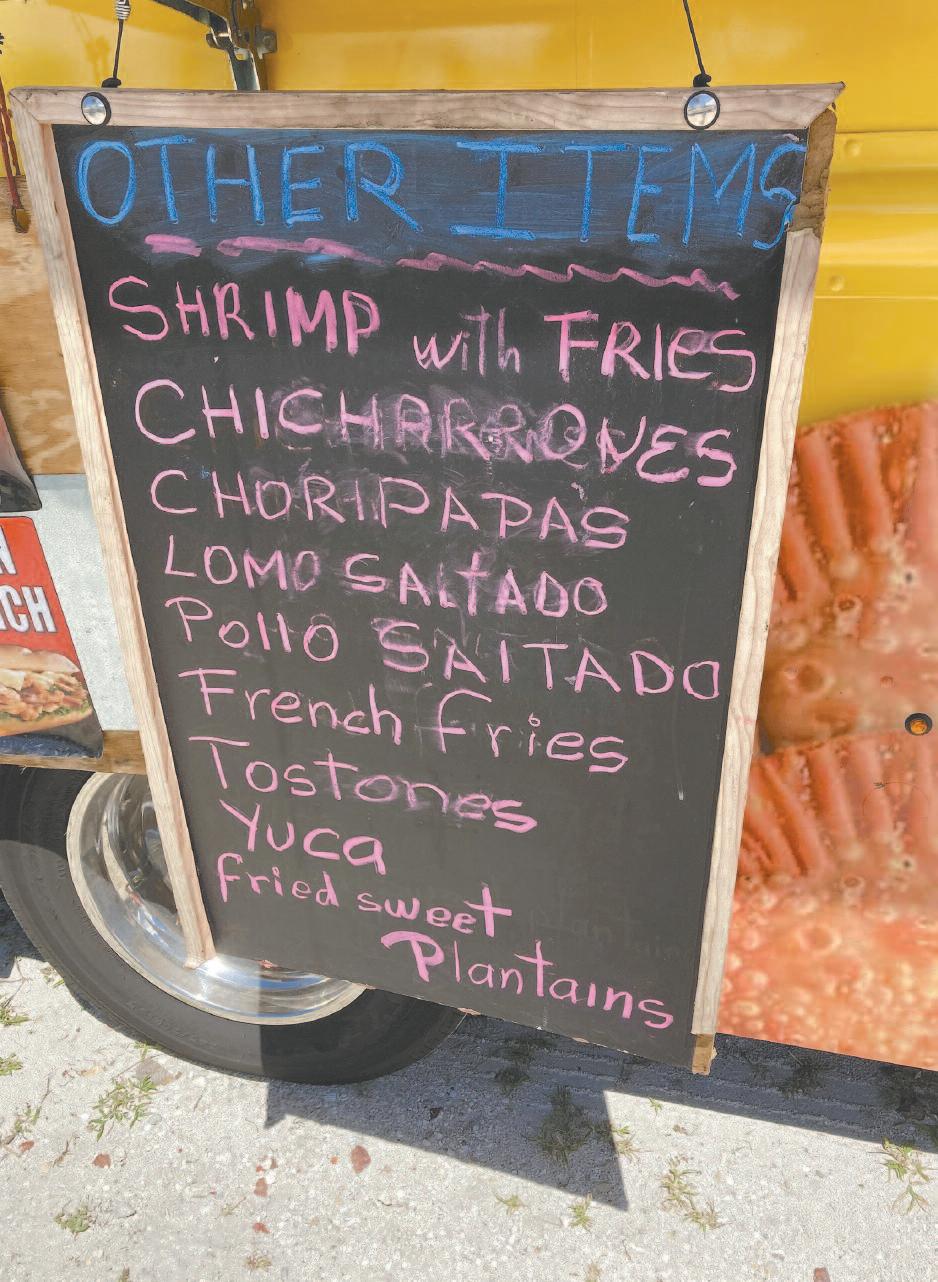 OTHER ITEMS
SHRIMP with FRIES
CHICHARRONES
CHORIPAPAS
LOMO SALTADO
Pollo SAlTADO
French fries
Tostones
Yuca
fried sweet
Plantains
CH